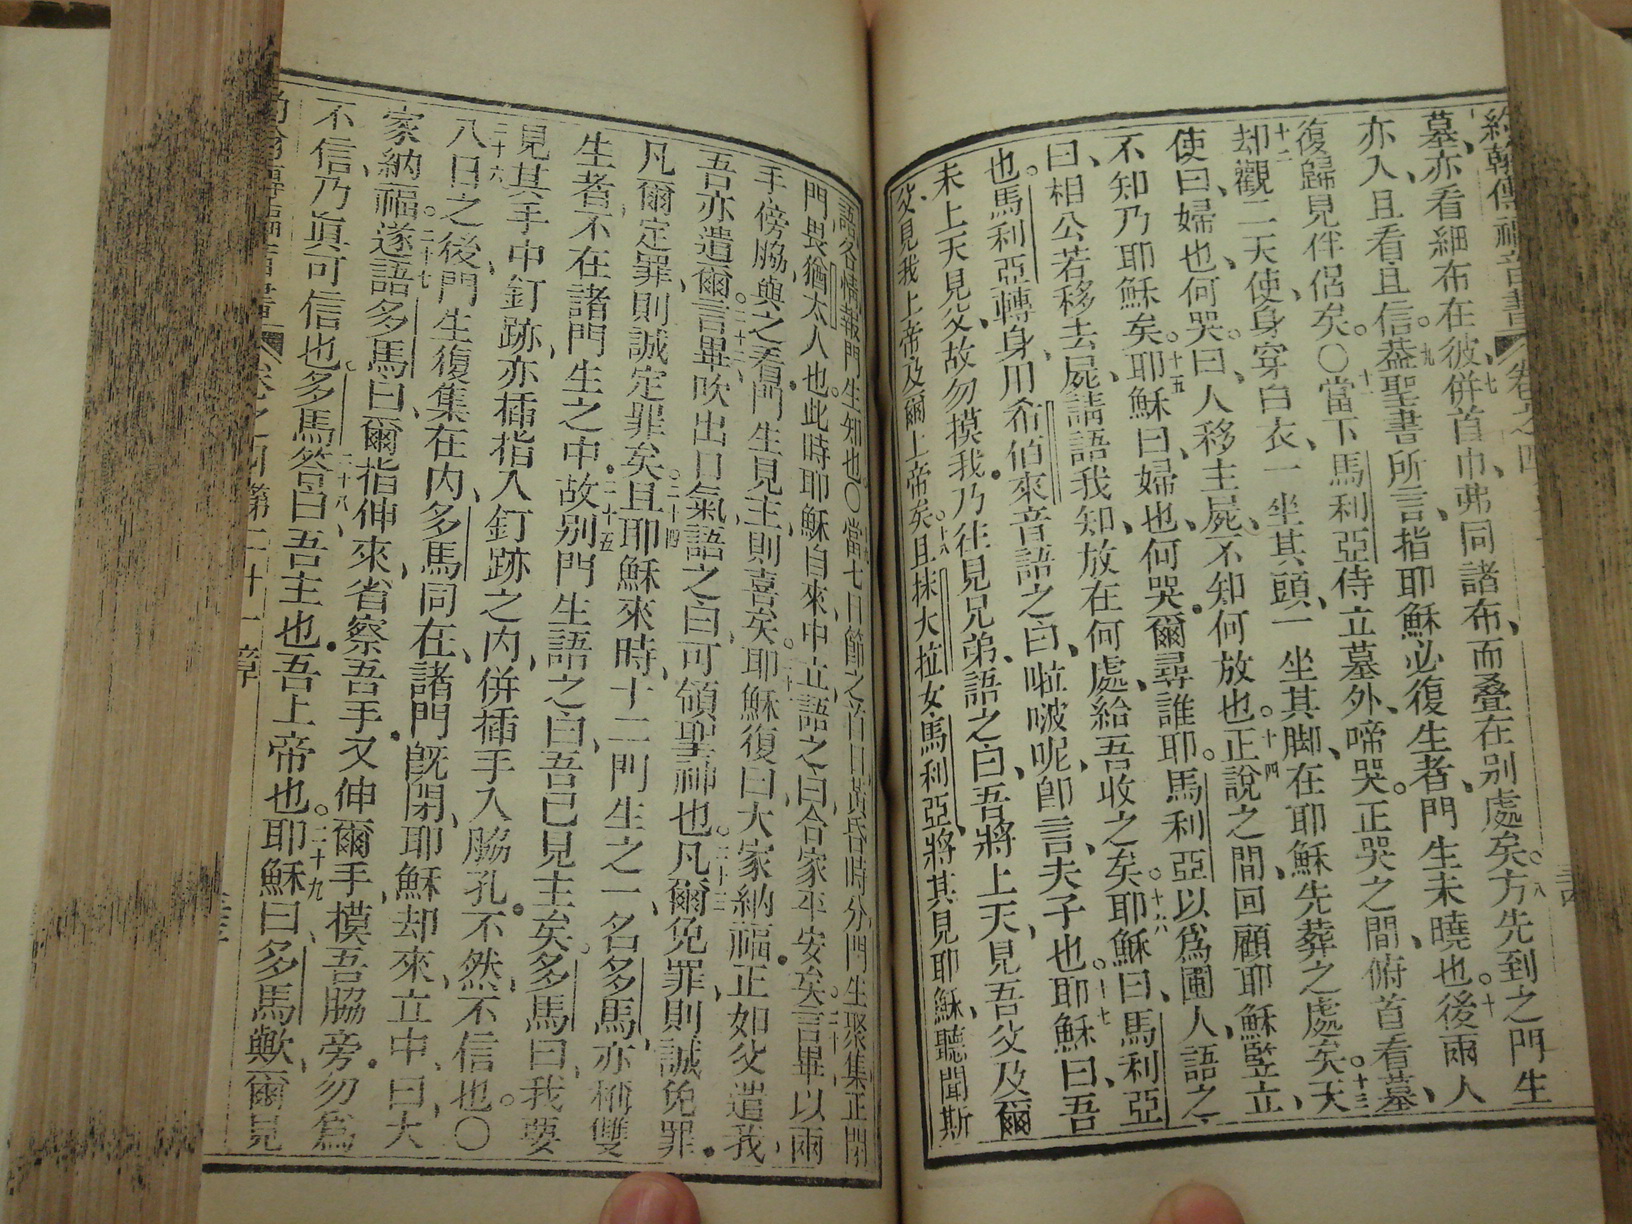 約翰傳福音書 卷之四
墓、亦看細布在彼、七併首巾、弗同諸布、而叠在别處矣。八方先到之門生
亦入、且看、且信。九葢聖書所言、指耶穌必復生者、門生未曉也。十後兩人
復歸見伴侣矣。〇十一當下馬利亞侍立墓外、啼哭。正哭之間、俯首看墓、
十二却觀二天使、身穿白衣、一坐其頭、一坐其脚、在耶穌先葬之處矣。十三天
使曰、婦也、何哭。曰、人移主屍、不知何放也。十四正說之間、回顧耶穌竪立、
不知乃耶穌矣。十五耶穌曰、婦也、何哭。爾尋誰耶。馬利亞以爲圃人、語之
曰、相公若移去屍、請語我知、放在何處、給吾收之矣。十六耶穌曰、馬利亞
也。馬利亞轉身、用希伯來音語之曰、啦啵呢、即言、夫子也。十七耶穌曰、吾
未上天見父、故勿摸我。乃往見兄弟、語之曰、吾將上天、見吾父及爾
父、見我上帝及爾上帝矣。十八且抹大拉女馬利亞、將其見耶穌、聽聞斯
語各情、報門生知也。〇十九當七日節之首日黃昏時分、門生聚集正閉
門、畏猶太人也。此時耶穌自來、中立、語之曰、合家平安矣。二十言畢、以兩
手、傍脇、與之看。門生見主、則喜矣。二十一耶穌復曰、大家納福。正如父遣我、
吾亦遣爾。二十二言畢、吹出口氣、語之曰、可領聖神也。二十三凡爾免罪、則誠免罪。
凡爾定罪、則誠定罪矣。二十四且耶穌來時、十二門生之一、名多馬、亦稱雙
生者、不在諸門生之中。二十五故别門生語之曰、吾已見主矣。多馬曰、我要
見其手中釘跡、亦插指入釘跡之内、併插手入脇孔。不然、不信也。〇
二十六八日之後、門生復集在内、多馬同在、諸門既閉、耶穌却來、立中、曰、大
家納福。二十七遂語多馬曰、爾指伸來、省察吾手。又伸爾手、摸吾脇旁。勿爲
不信、乃眞可信也。二十八多馬答曰、吾主也。吾上帝也。二十九耶穌曰、多馬歟、爾見
約翰傳福音書 卷之四 第二十一章